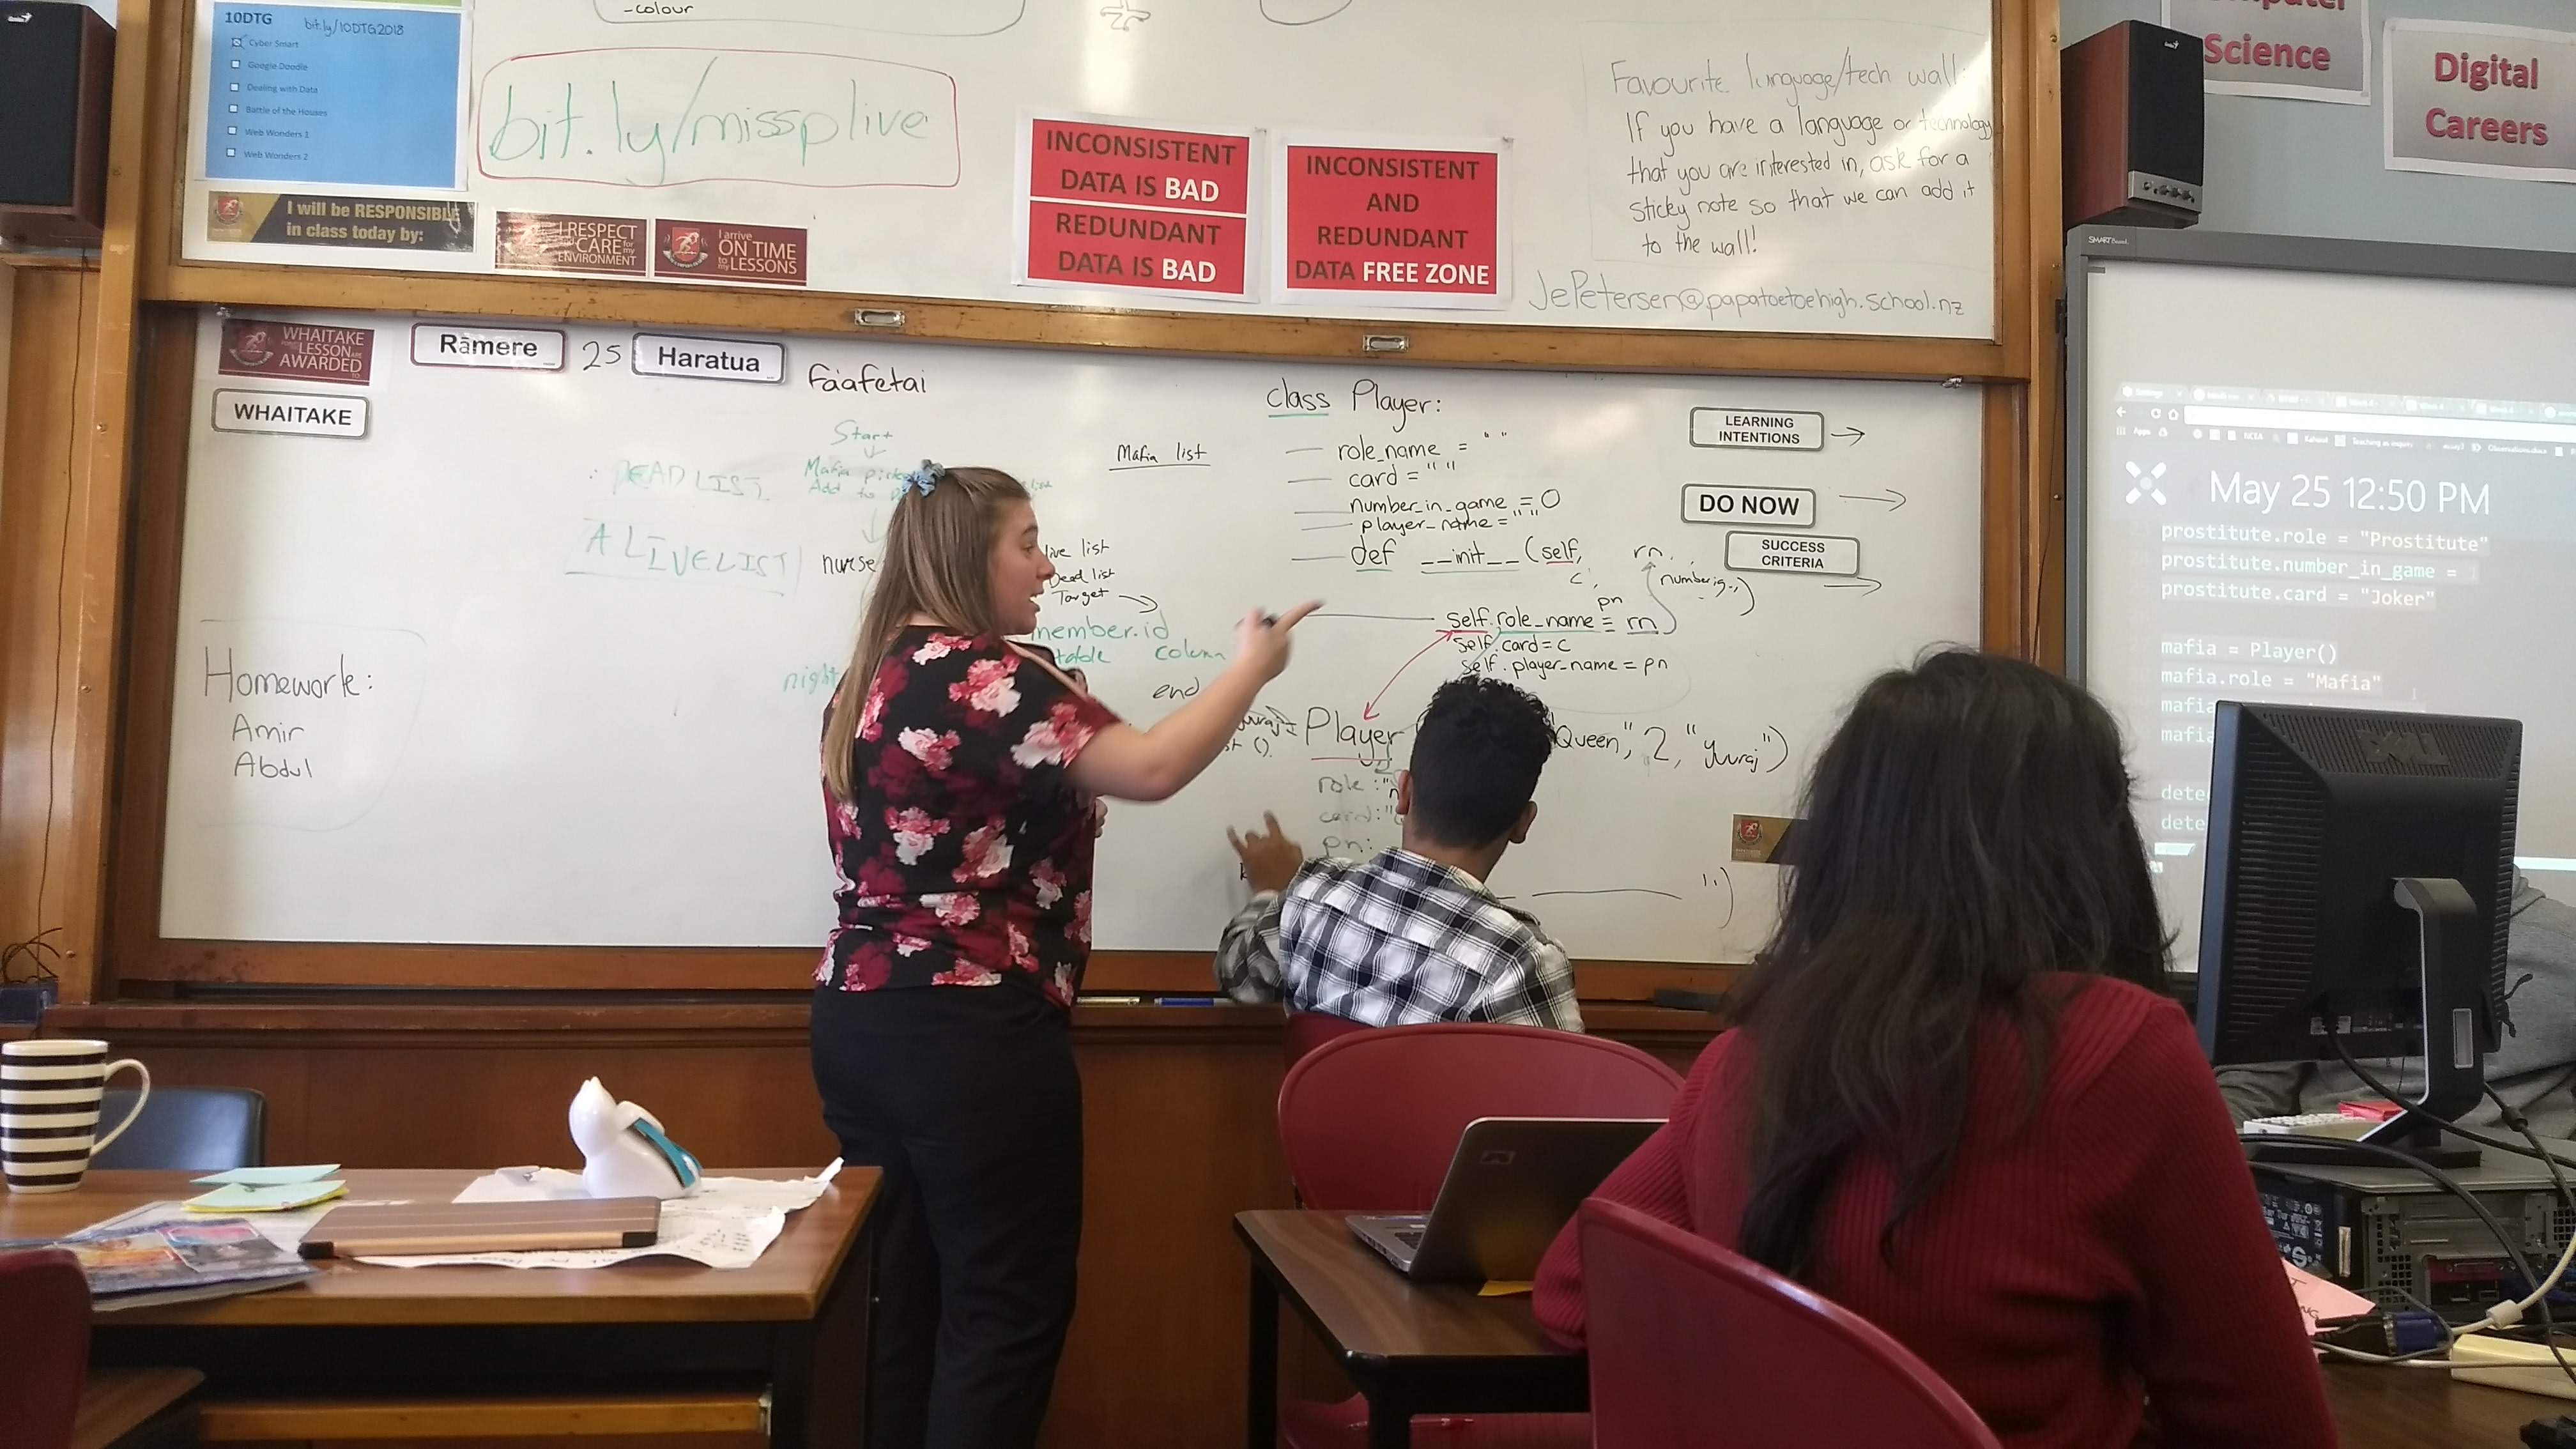 -colour
10DTG
bit.ly/10DTG2018
Cyber Smart
Google Doodle
Dealing with Data
Battle of the Houses
Web Wonders 1
Web Wonders 2
bit.ly/missplive
I will be RESPONSIBLE
in class today by:
I RESPECT
CARE for my
ENVIRONMENT
I arrive
ON TIME
to my LESSONS
INCONSISTENT
DATA IS BAD
REDUNDANT
DATA IS BAD
INCONSISTENT
AND
REDUNDANT
DATA FREE ZONE
Favourite language/tech wall:
If you have a language or technology
that you are interested in, ask for a
sticky note so that we can add it
to the wall!
JePetersen@papatoetoehigh.school.nz
Science
Digital
Careers
SMART Board
WHAITAKE
LESSON
AWARDED
Rāmere
25
Haratua
faafetai
WHAITAKE
: DEADLIST
ALIVELIST
Start
Mafia
Add to
nurse
Mafia list
live list
Dead list
Target
member.id
table column
night
end
Homework:
Amir
Abdul
class Player:
role_name = " "
card = " "
number_in_game = 0
player_name = " "
def __init__ (self, rn,
c,
pn
self.role_name = rn
self.card = c
self.player_name = pn
Player
Queen", 2, "Yuvraj")
role:
card:
pn:
LEARNING
INTENTIONS
DO NOW
SUCCESS
CRITERIA
May 25 12:50 PM
prostitute.role = "Prostitute"
prostitute.number_in_game =
prostitute.card = "Joker"
mafia = Player()
mafia.role = "Mafia"
mafia
mafia
dete
dete
DELL